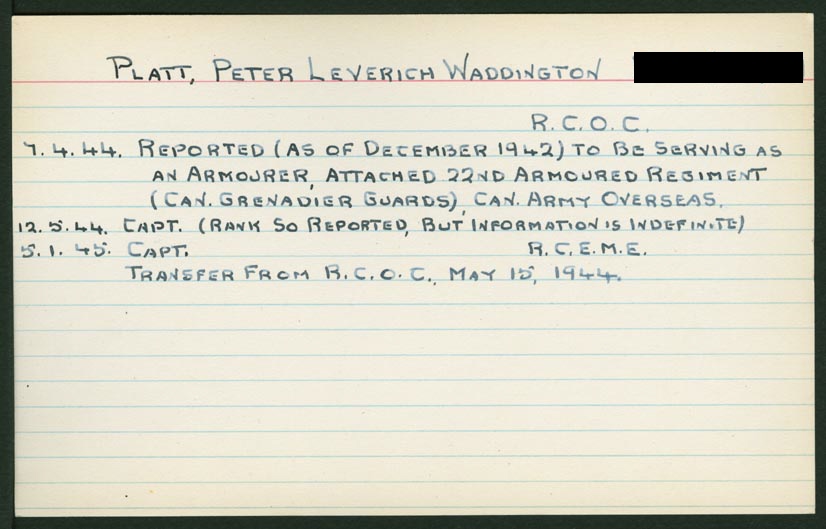 PLATT, PETER LEVERICH WADDINGTON
R.C.O.C.
7.4.44. REPORTED (AS OF DECEMBER 1942) TO BE SERVING AS
AN ARMOURER, ATTACHED 22ND ARMOURED REGIMENT
(CAN. GRENADIER GUARDS), CAN. ARMY OVERSEAS.
12.5.44. CAPT. (RANK SO REPORTED, BUT INFORMATION IS INDEFINITE)
5.1.45. CAPT. R.C.E.M.E.
TRANSFER FROM R.C.O.C., MAY 15, 1944.